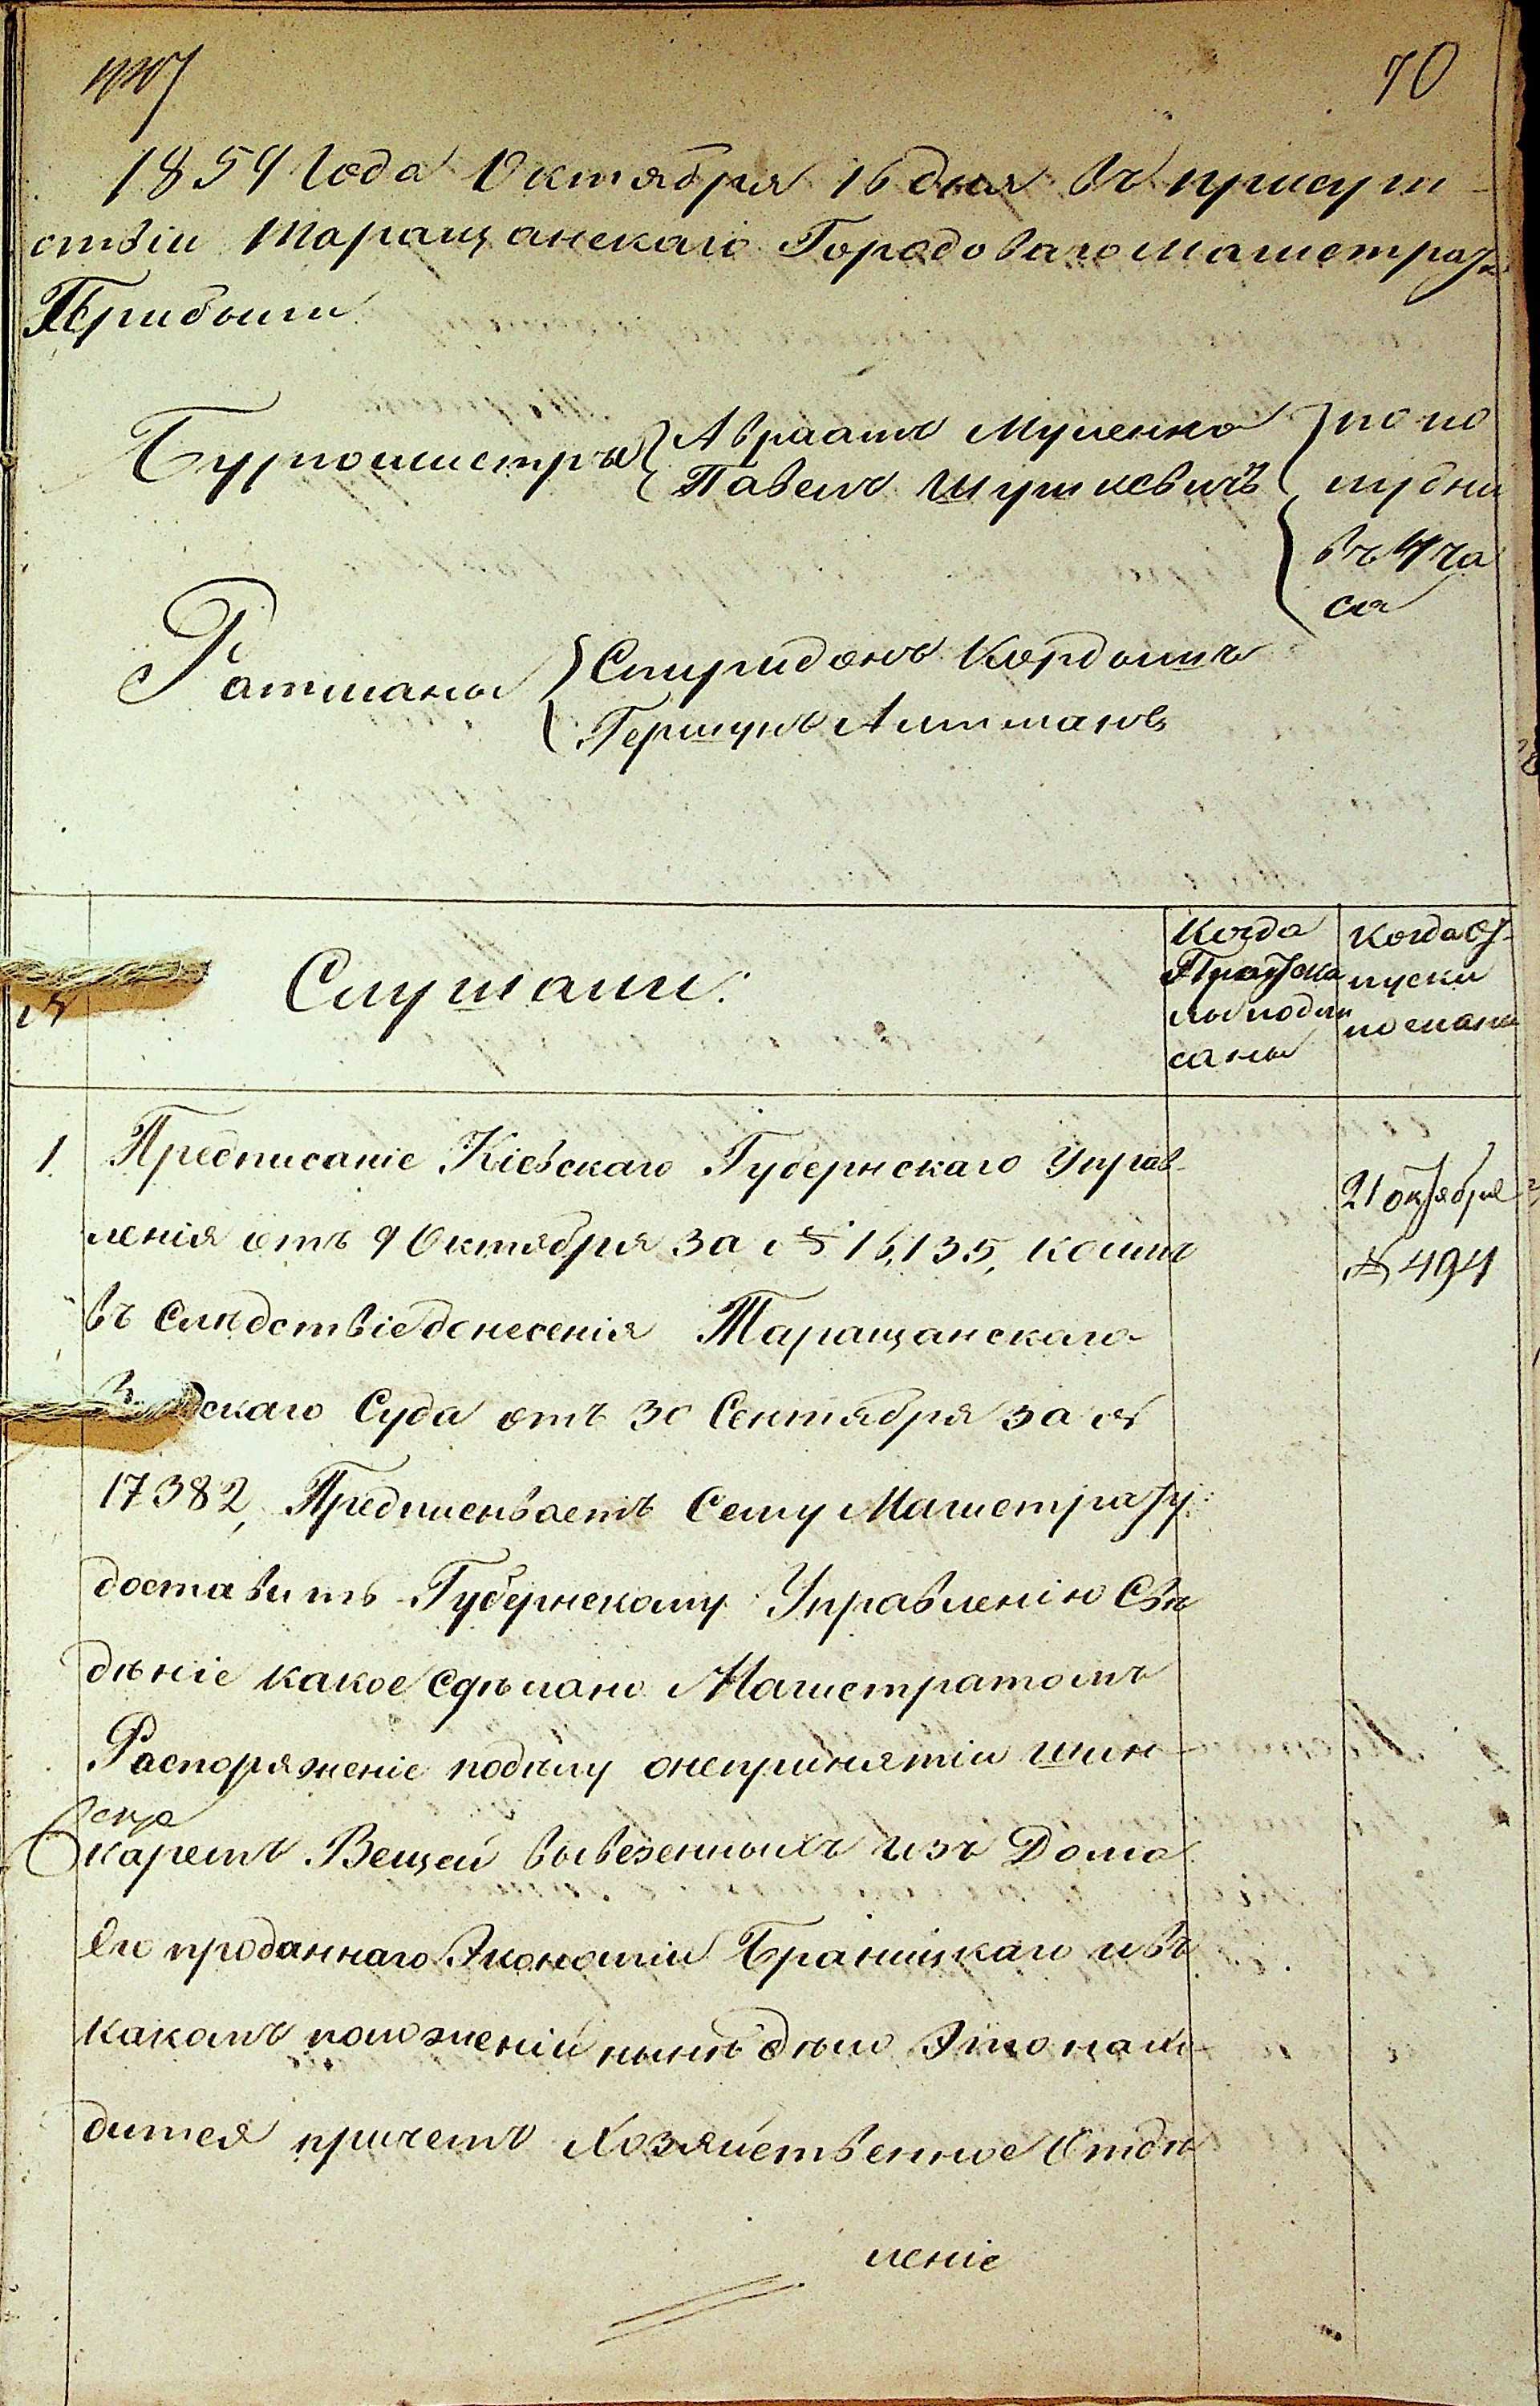 70
1854 Года Октября 16 дня въ присут-
ствіи Таращанскаго Городоваго магистрата
Прибыли
Бургомистры { Авраамъ Муленко } по по
Павелъ Шушкевичъ лудни
въ 4 ча
са
Ратманы { Спиридонъ Кордышъ
Гершунъ Алтманъ
№ Слушали: Когда Протоко Когда от-
лы подпи пуски
саны посланы
1 Предписаніе Кіевскаго Губернскаго Управ- 21 октября
ленія отъ 9 Октября за № 16,135, коимъ № 494
въ Слѣдствіе донесенія Таращанскаго
скаго Суда отъ 30 Сентября за №
17382, Предписываетъ Сему Магистрату
доставить Губернскому Управленію Свѣ
дѣніе какое сдѣлано Магистратомъ
Распоряженіе подѣлу онепринятіи шин-
каремъ Вещей вывезенныхъ изъ Дома
Его проданнаго Экономіи Браницкаго ивъ
какомъ положеніи нынѣ дѣло Это нахо
дится причемъ Хозяйственное Отдѣ
леніе